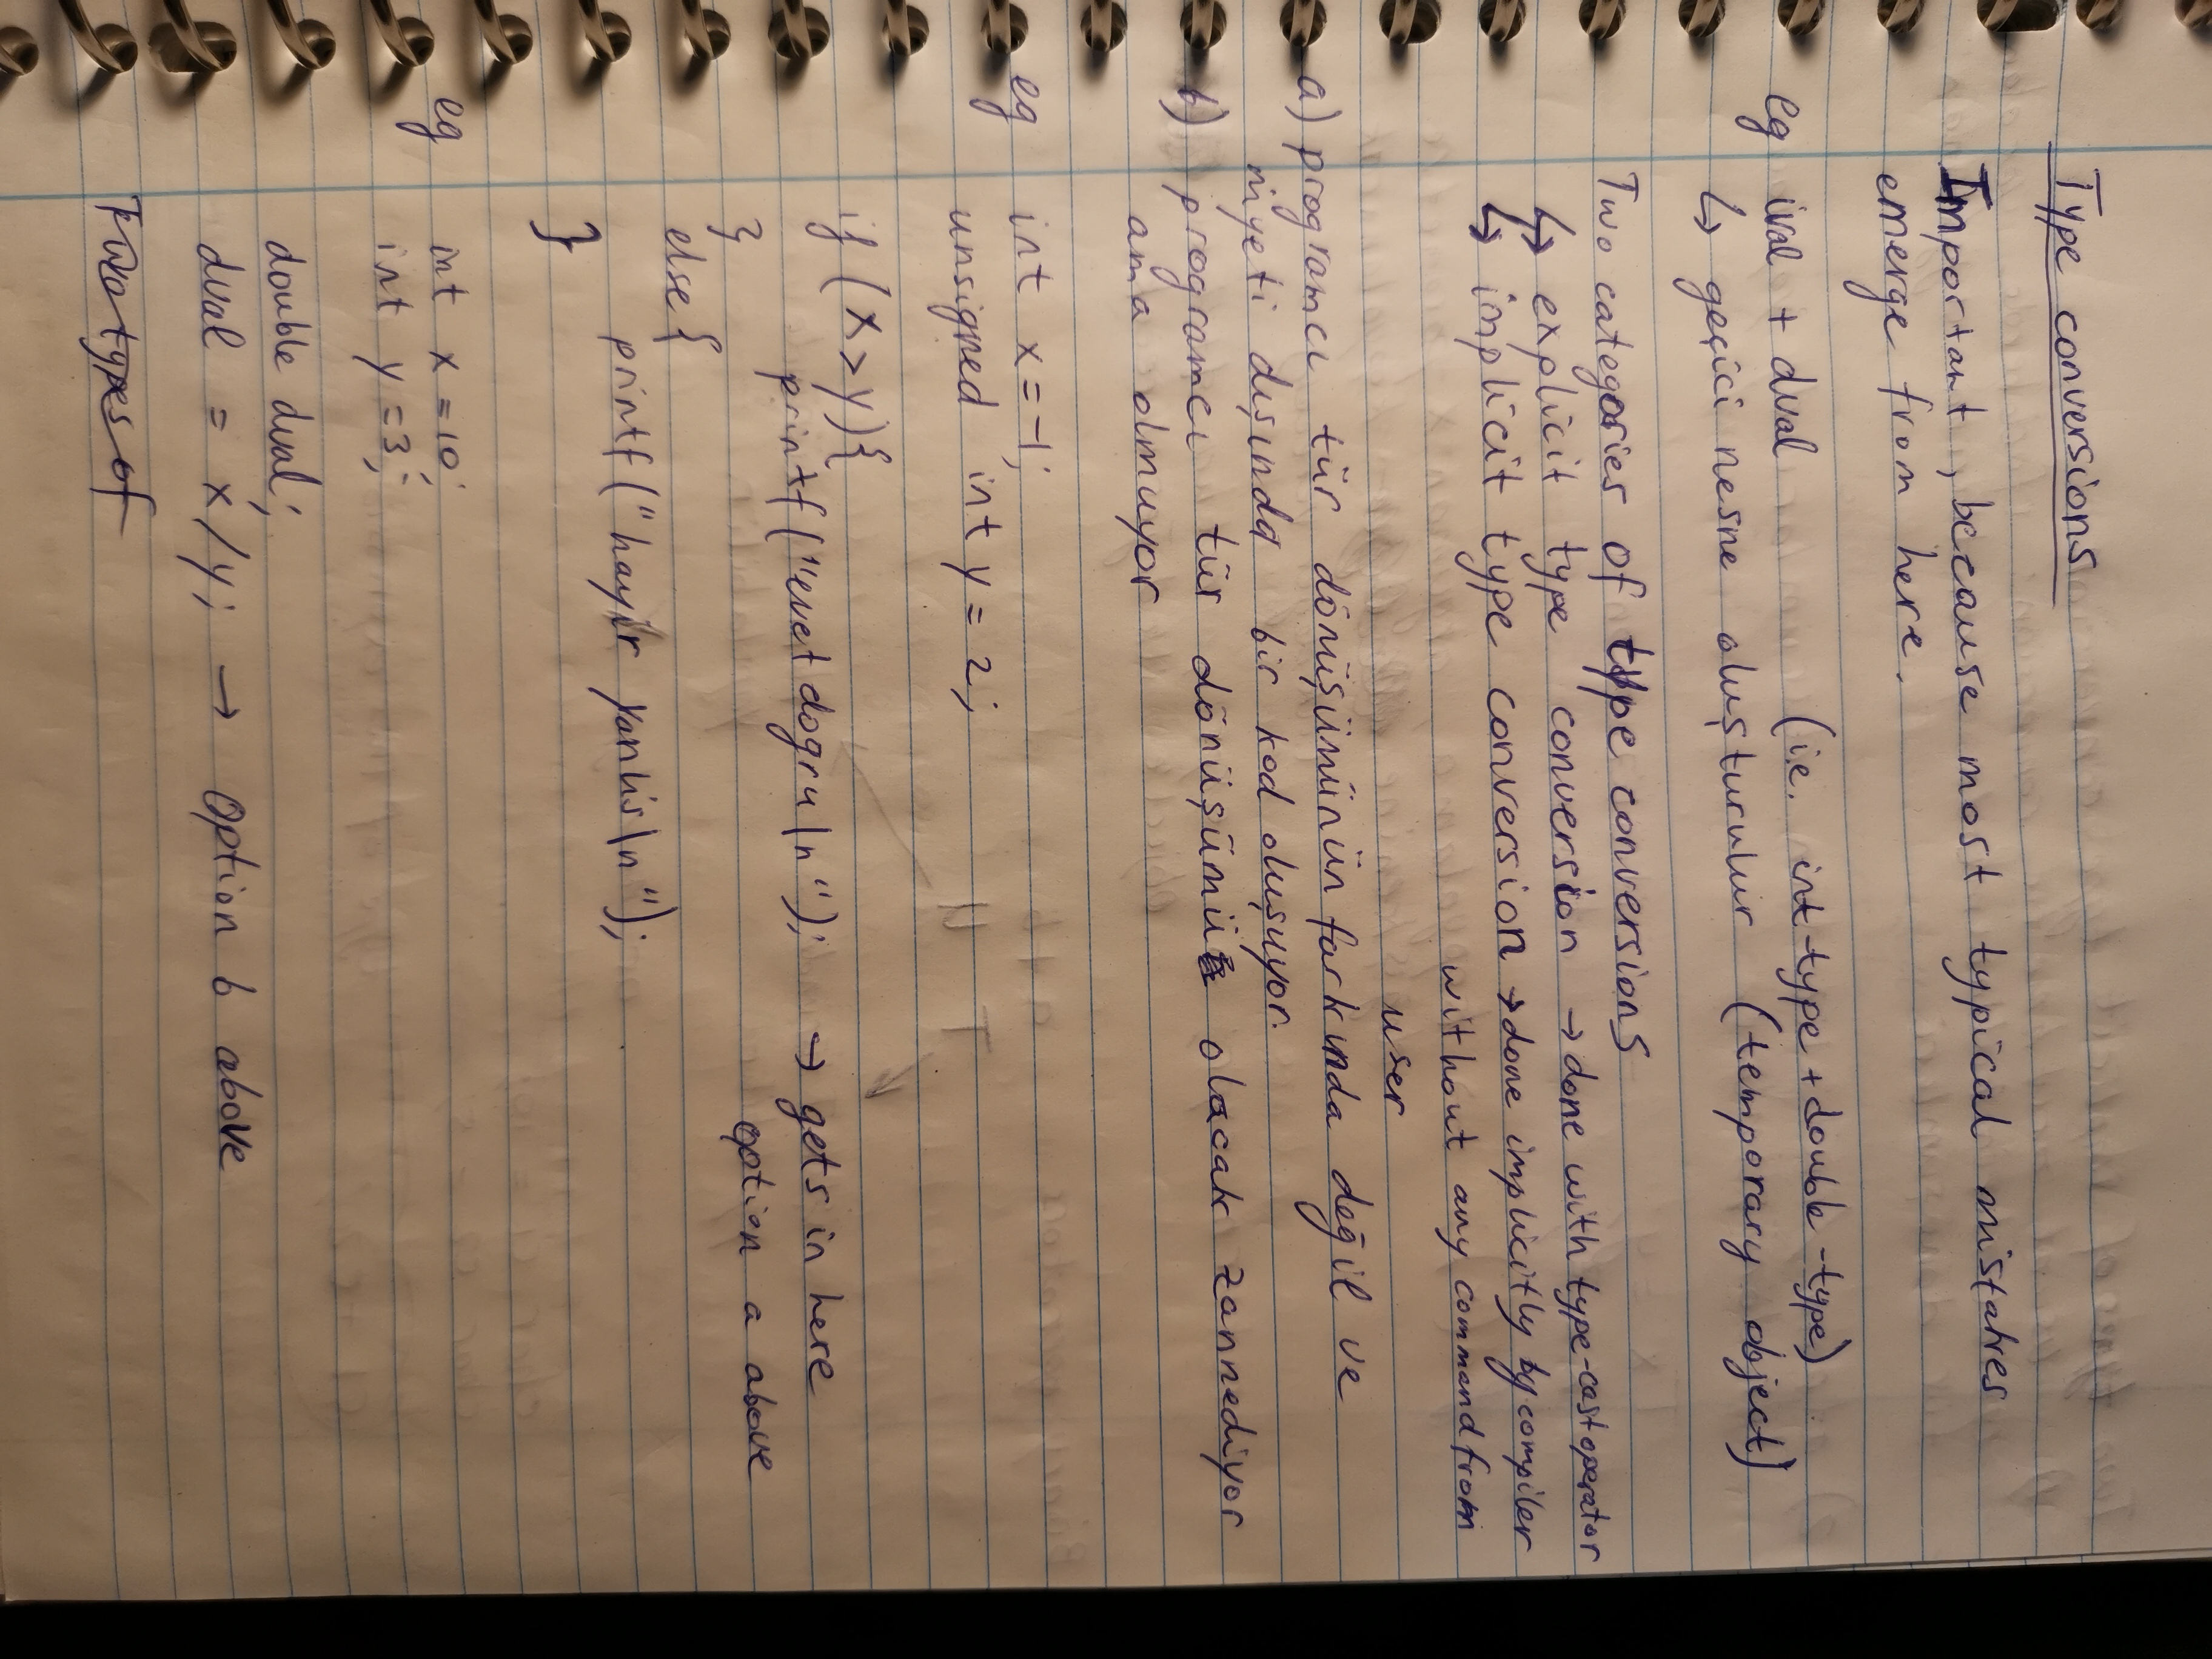 Type conversions
Important, because most typical mistakes
emerge from here.
eg ival + dval (i.e. int-type + double-type)
↳ geçici nesne oluşturulur (temporary object)
Two categories of type conversions
↳ explicit type conversion → done with type-cast operator
↳ implicit type conversion → done implicitly by compiler
without any command from
user
a) programcı tür dönüşümünün farkında değil ve
niyeti dışında bir kod oluşuyor.
b) programcı tür dönüşümü olacak zannediyor
ama olmuyor
eg int x = -1;
unsigned int y = 2;
if (x > y) {
printf("evet dogru\n"); → gets in here
} option a above
else {
printf("hayir yanlis\n");
}
eg int x = 10;
int y = 3;
double dval;
dval = x / y; → option b above
Two types of